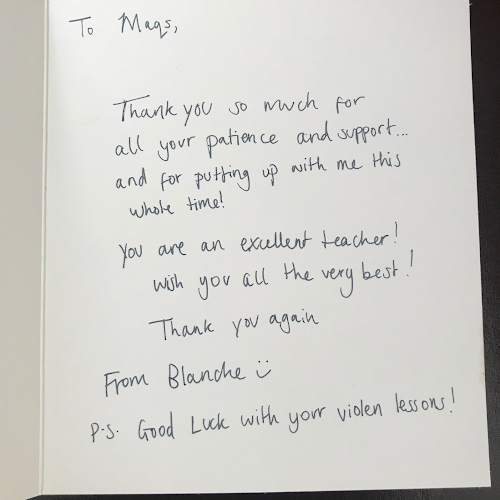 To Mags,
Thank you so much for
all your patience and support...
and for putting up with me this
whole time!
You are an excellent teacher!
wish you all the very best!
Thank you again
From Blanche :)
P.S. Good Luck with your violen lessons!